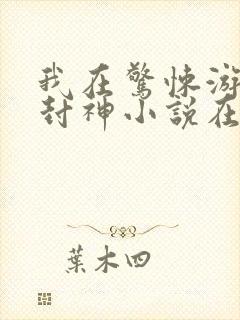 我在驚悚游
封神小說在
葉木四